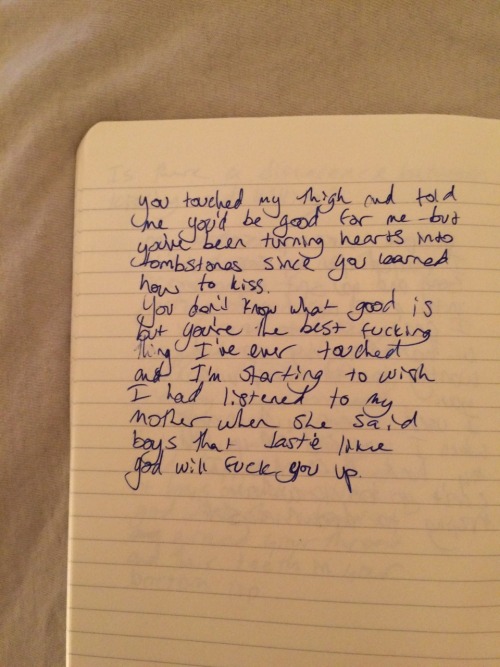 you touched my thigh and told
me you'd be good for me - but
you've been turning hearts into
tombstones since you learned
how to kiss.
You don't know what good is
but you're the best fucking
thing I've ever touched
and I'm starting to wish
I had listened to my
mother when she said
boys that taste like
god will fuck you up.